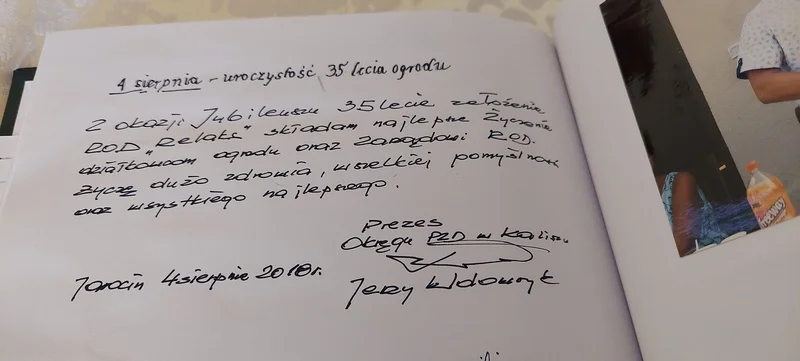 4 sierpnia - uroczystość 35 lecia ogrodu
Z okazji Jubileuszu 35 lecie założenia
R.O.D „Relaks" składam najlepsze Życzenie
działkowcom ogrodu oraz zarządowi R.O.D.
Życzę dużo zdrowia, wszelkiej pomyślności
oraz wszystkiego najlepszego.
Prezes
Okręgu PZD w Kaliszu
Jarocin 4 sierpnia 2018r.
Jerzy